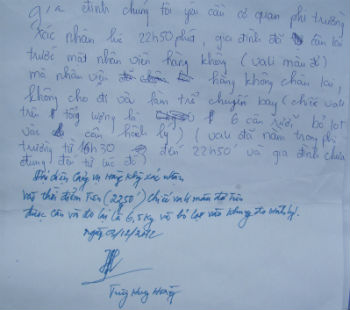 gia đình chúng tôi yêu cầu cơ quan phi trường
xác nhận lúc 22h50 phút, gia đình đã cân lại
trước mặt nhân viên hàng không (vali màu đỏ)
mà nhân viên hàng không chặn lại,
không cho đi và làm trễ chuyến bay (chiếc vali
trên tổng lượng là 6 cân rưỡi bỏ lọt
vào cân hành lý) (vali đã nằm trong phi
trường từ 16h30 đến 22h50' và gia đình chưa
đụng đến từ lúc đó)
Đại diện Cảng vụ Hàng không xác nhận
vào thời điểm trên (22g50') chiếc vali màu đỏ trên
được cân và đo lại là 6,5kg và bỏ lọt vào khung đo hành lý.
ngày 02/12/2012
Hùng